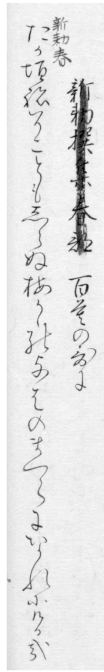 新勅撰集春部 百首の哥に
新勅春
たか垣根そこともしらぬ梅かゝの夜はのまくらになれにける哉